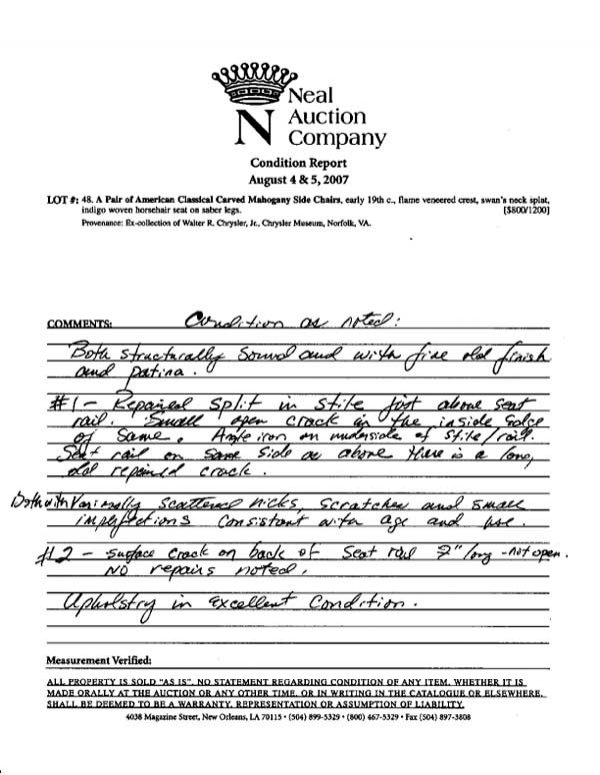 Neal
Auction
Company
N
Condition Report
August 4 & 5, 2007
LOT #: 48. A Pair of American Classical Carved Mahogany Side Chairs, early 19th c., flame veneered crest, swan's neck splat,
indigo woven horsehair seat on saber legs. [$800/1200]
Provenance: Ex-collection of Walter R. Chrysler, Jr., Chrysler Museum, Norfolk, VA.
COMMENTS: Condition as noted:
Both structurally sound and with fine old finish
and patina.
#1 - Repaired split in stile just above seat
rail. Small open crack in the inside
of same. Angle iron on underside of stile/rail.
Seat rail on same side as above there is a long,
old repaired crack.
Both with scattered nicks, scratches and small
imperfections consistant with age and use.
#2 - surface crack on back of seat rail 2" long - not open.
NO repairs noted.
Upholstry in excellent condition.
Measurement Verified:
ALL PROPERTY IS SOLD "AS IS". NO STATEMENT REGARDING CONDITION OF ANY ITEM, WHETHER IT IS
MADE ORALLY AT THE AUCTION OR ANY OTHER TIME, OR IN WRITING IN THE CATALOGUE OR ELSEWHERE,
SHALL BE DEEMED TO BE A WARRANTY, REPRESENTATION OR ASSUMPTION OF LIABILITY.
4038 Magazine Street, New Orleans, LA 70115 • (504) 899-5329 • (800) 467-5329 • Fax (504) 897-3808